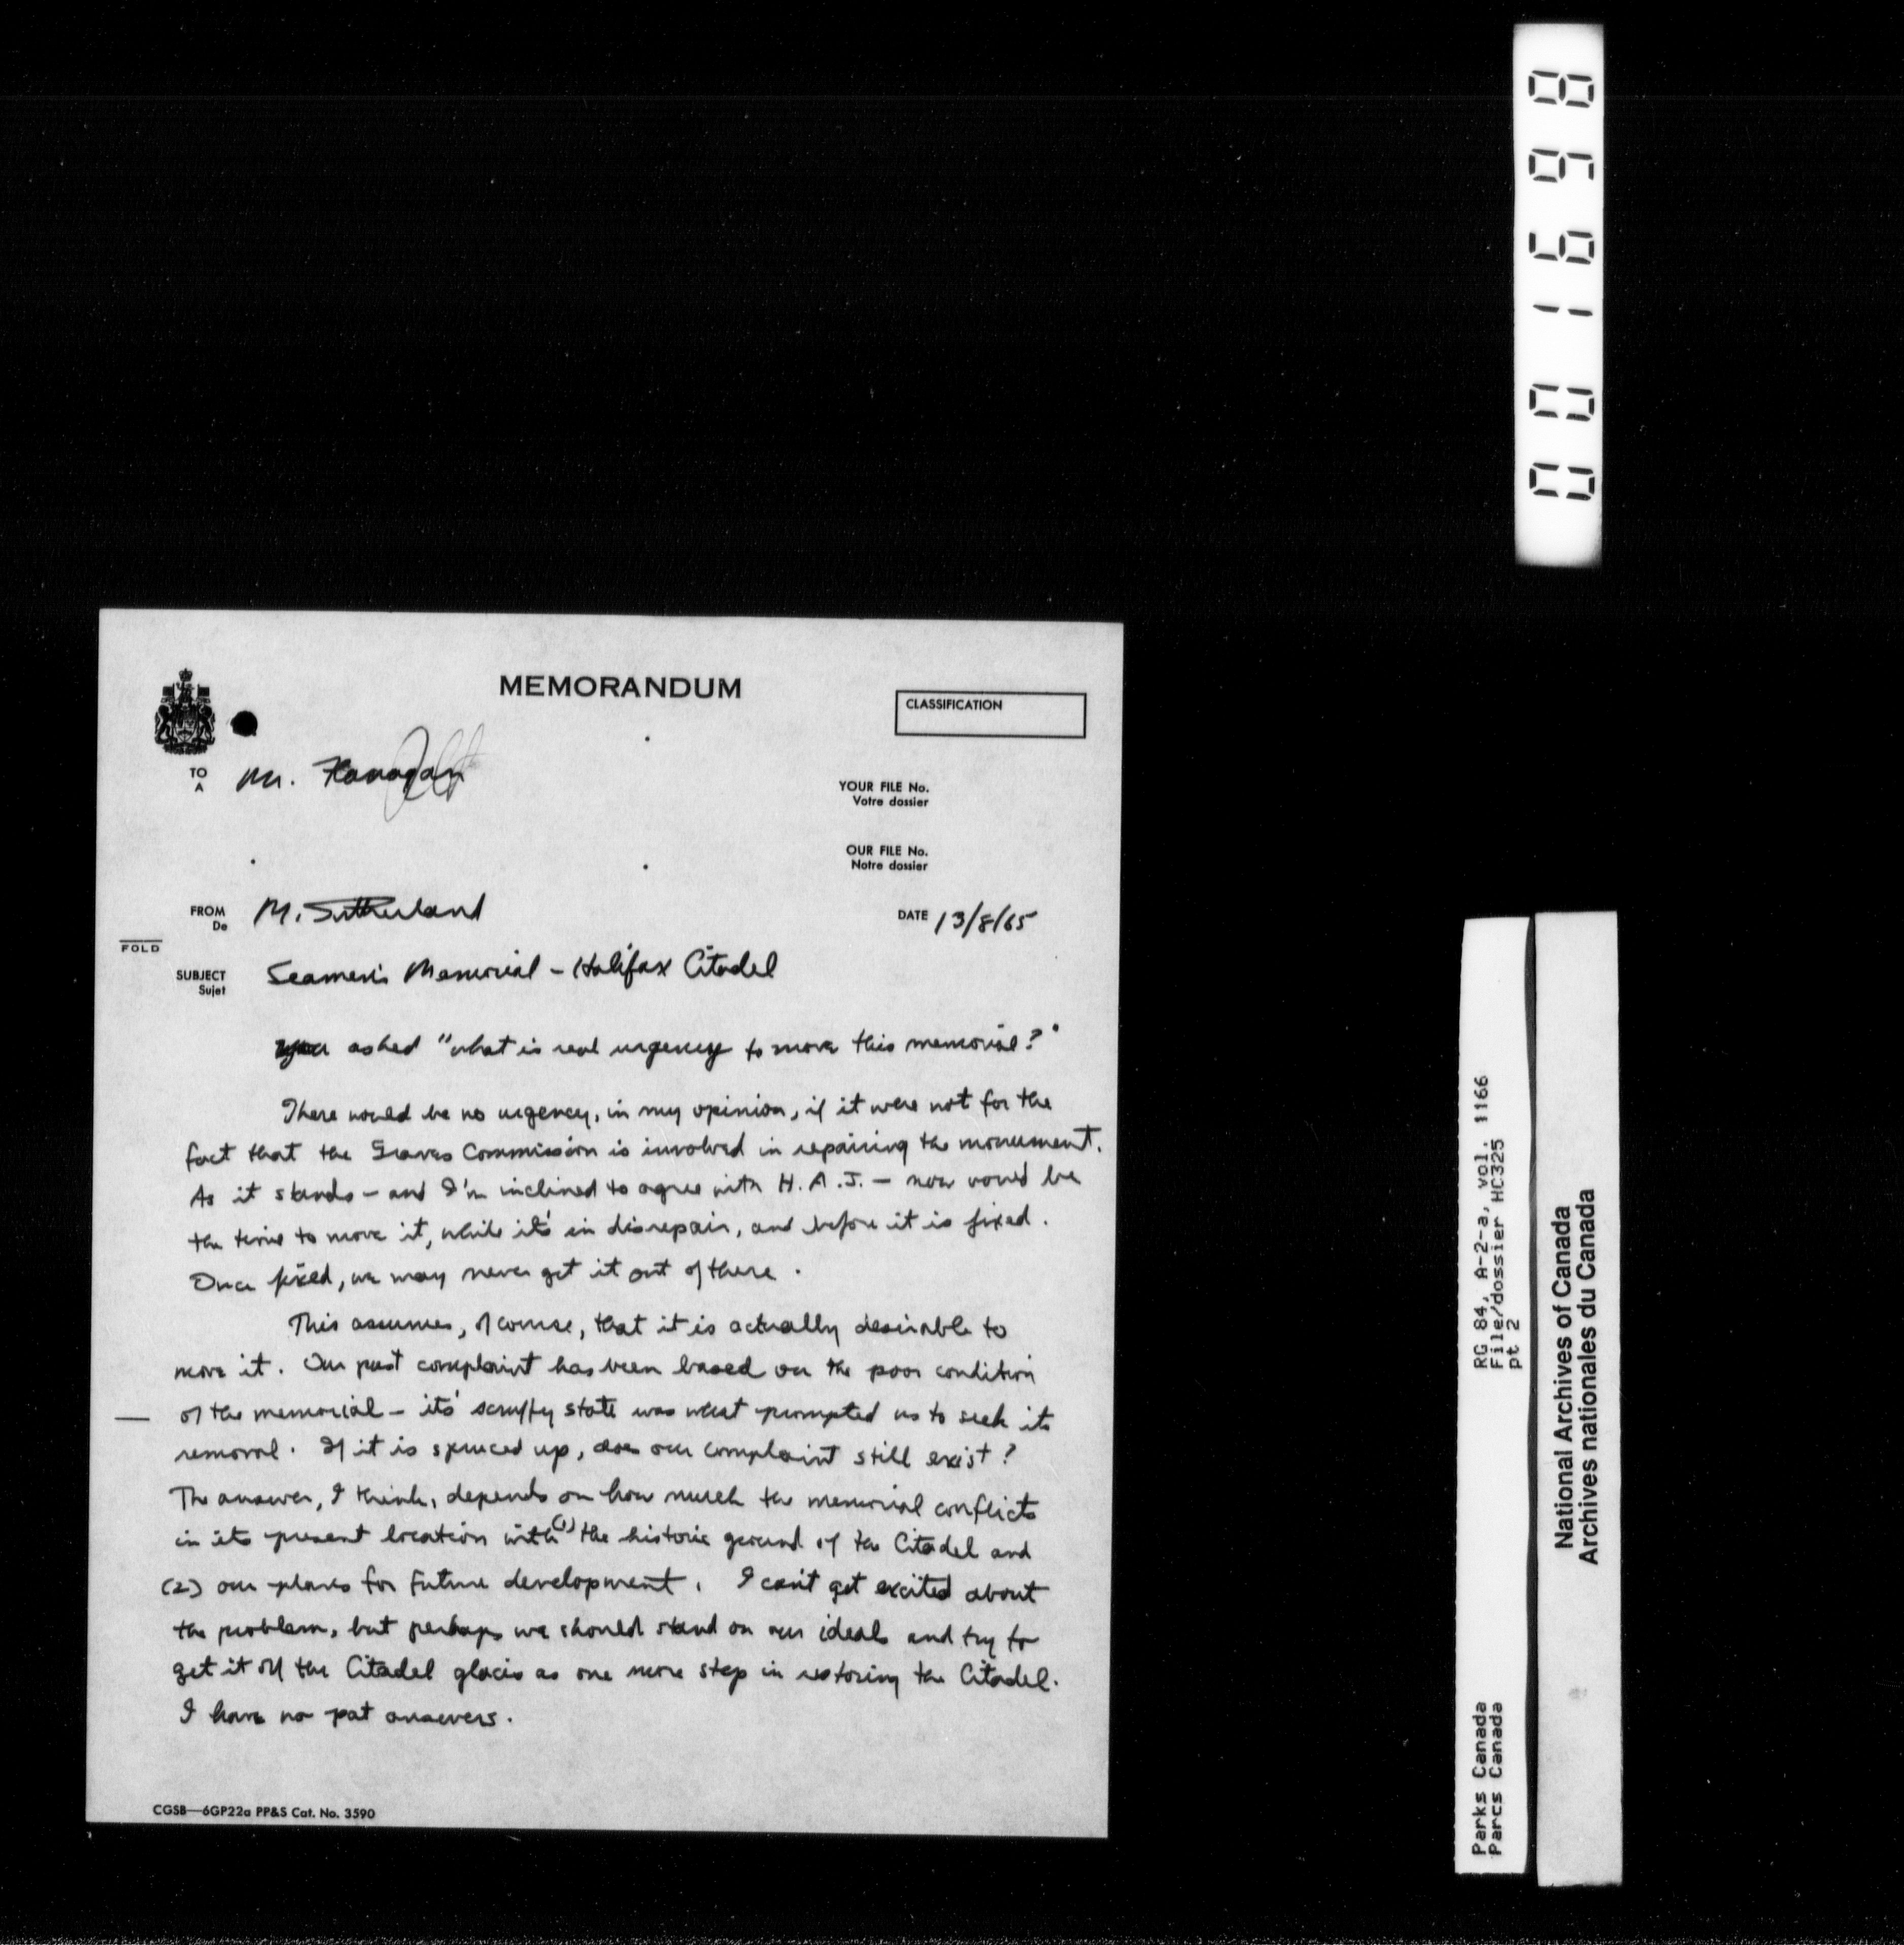 001698
MEMORANDUM
CLASSIFICATION
TO
A
Mr. Flanagan
YOUR FILE No.
Votre dossier
OUR FILE No.
Notre dossier
FROM
De
M. Sutherland
DATE 13/8/65
FOLD
SUBJECT
Sujet
Seamen's Memorial - Halifax Citadel
You asked "what is real urgency to move this memorial?"
There would be no urgency, in my opinion, if it were not for the
fact that the Graves Commission is involved in repairing the monument.
As it stands - and I'm inclined to agree with H.A.J. - now would be
the time to move it, while it's in disrepair, and before it is fixed.
Once fixed, we may never get it out of there.
This assumes, of course, that it is actually desirable to
move it. Our past complaint has been based on the poor condition
of the memorial - its' scruffy state was what prompted us to seek its
removal. If it is spruced up, does our complaint still exist?
The answer, I think, depends on how much the memorial conflicts
in its present location with (1) the historic ground of the Citadel and
(2) our plans for future development. I can't get excited about
the problem, but perhaps we should stand on our ideals and try to
get it off the Citadel glacis as one more step in restoring the Citadel.
I have no pat answers.
CGSB—6GP22a PP&S Cat. No. 3590
RG 84, A-2-a, vol. 1166
File/dossier HC325
pt 2
Parks Canada
Parcs Canada
National Archives of Canada
Archives nationales du Canada